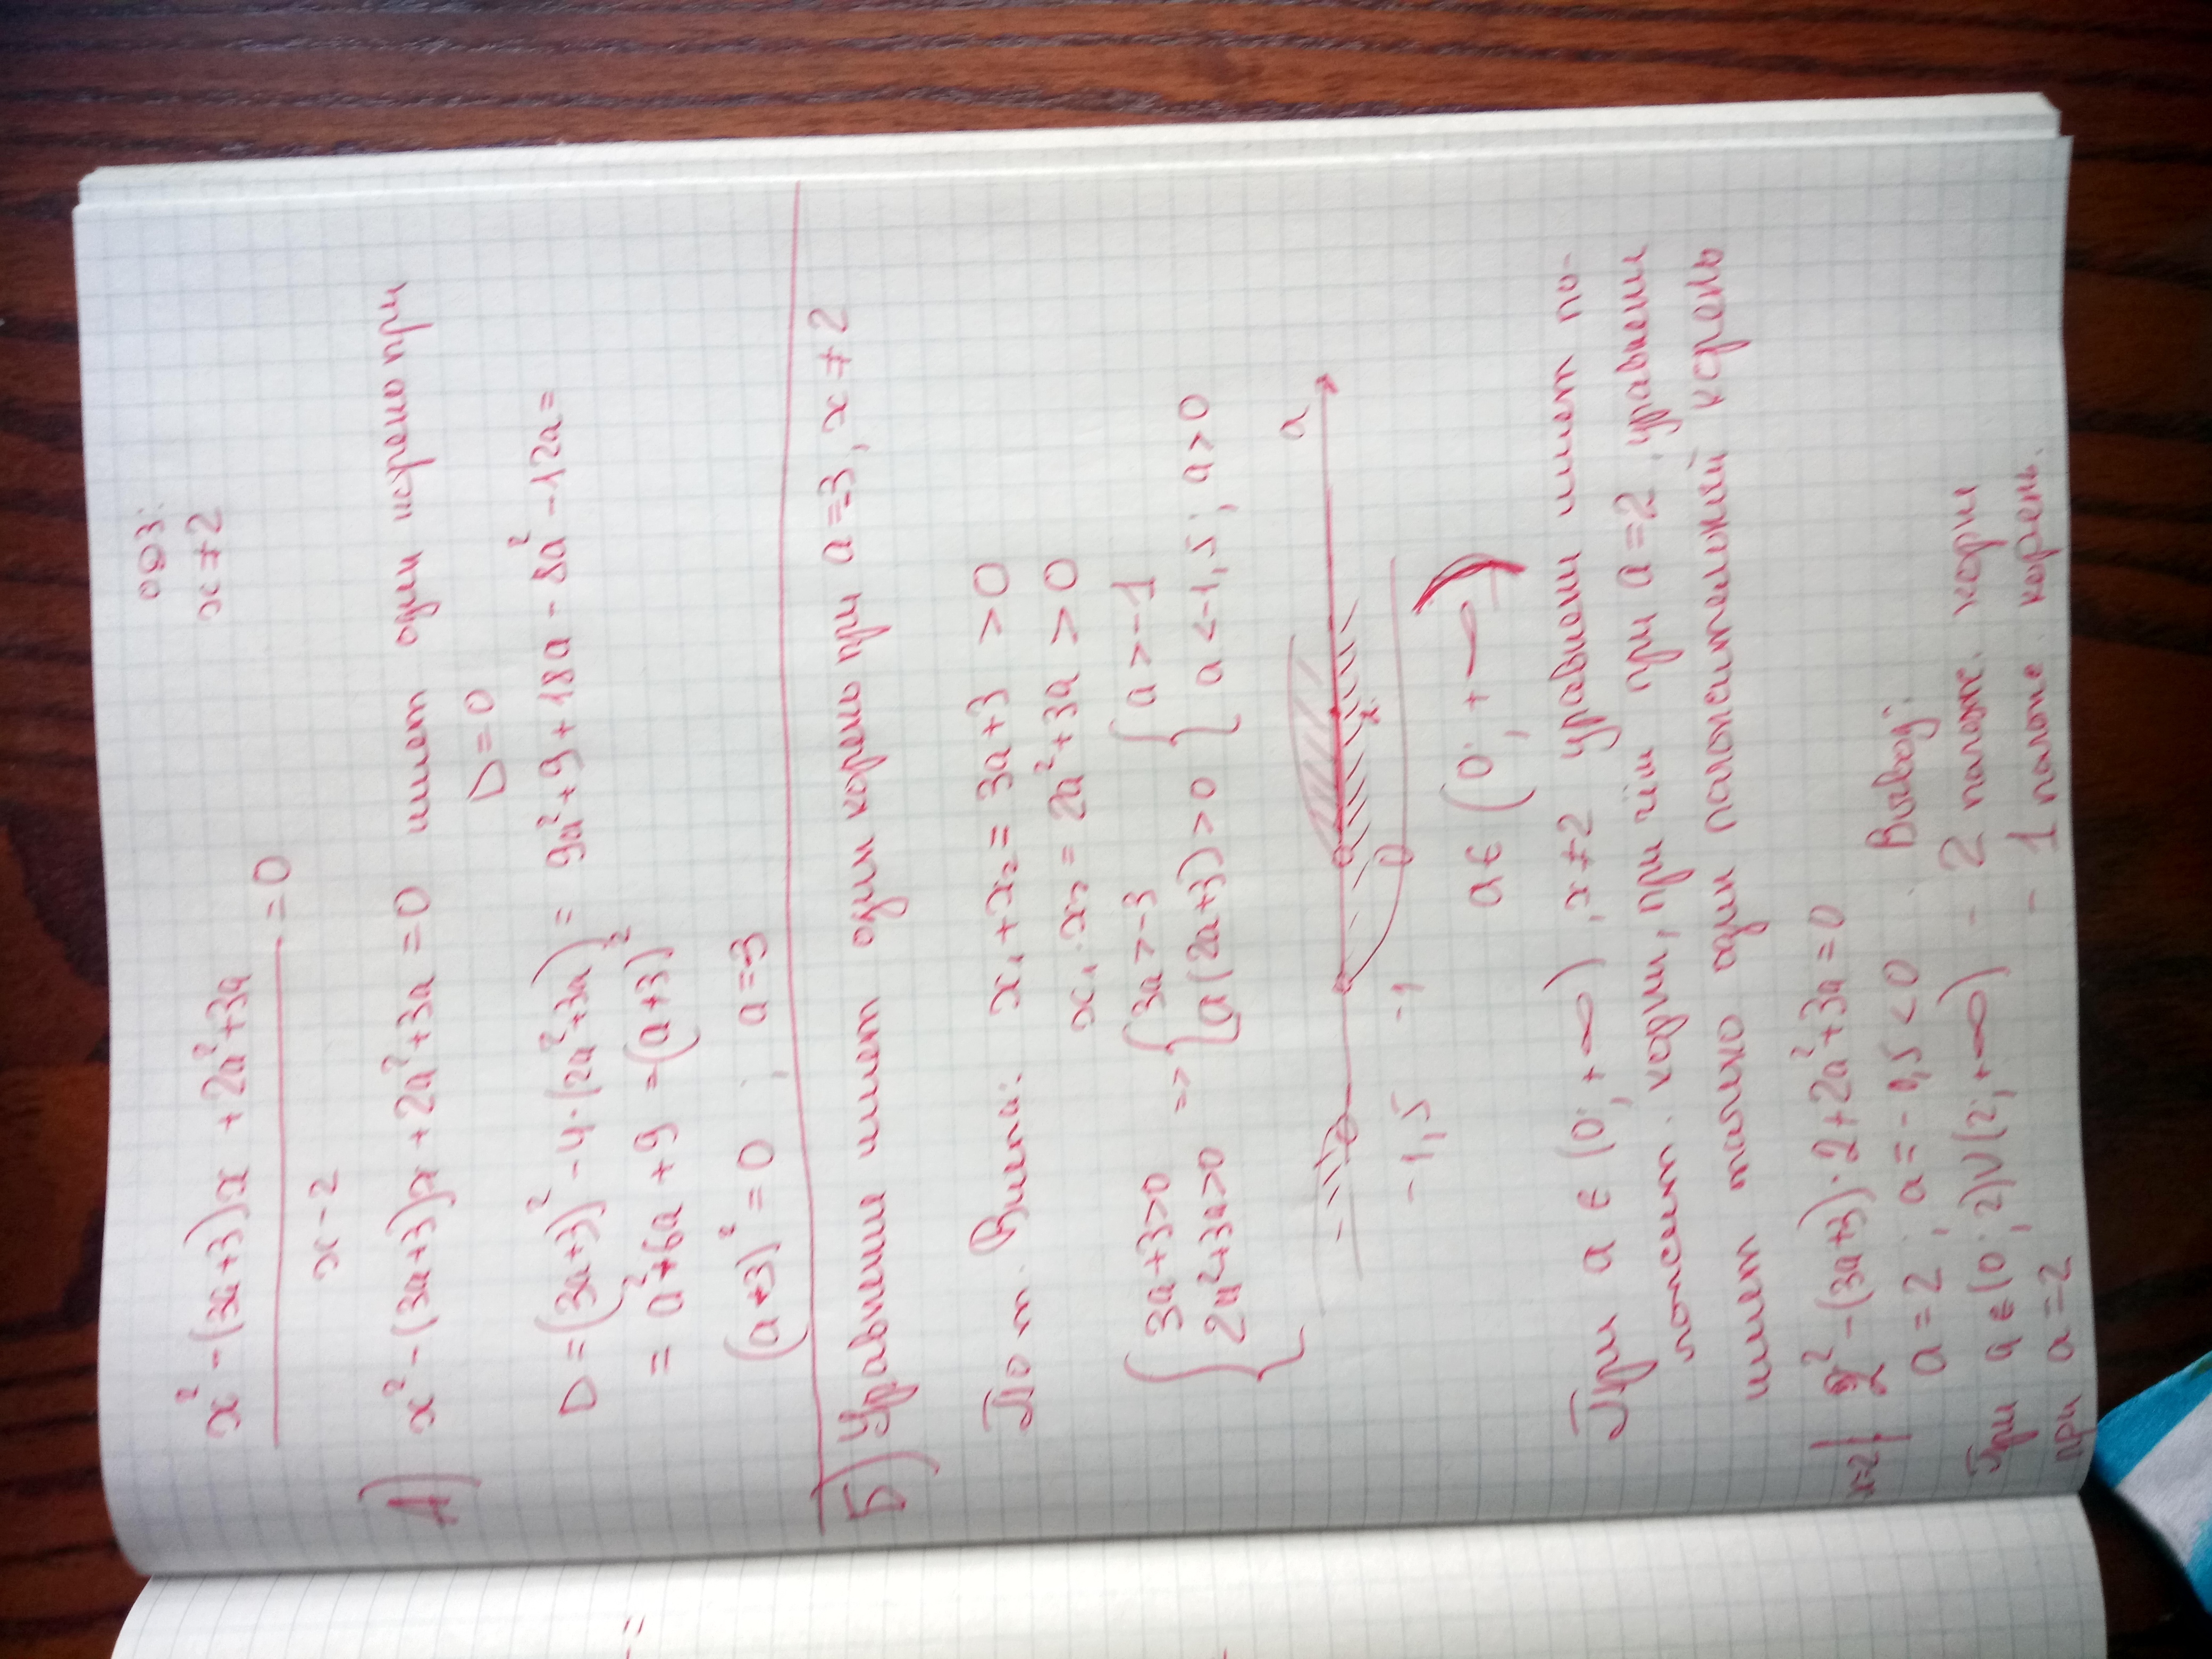 ОДЗ:
x ≠ 2
x² - (3a+3)x + 2a² + 3a
= 0
x - 2
А) x² - (3a+3)x + 2a² + 3a = 0 имеет один корень при
D = 0
D = (3a+3)² - 4·(2a²+3a) = 9a² + 9 + 18a - 8a² - 12a =
= a² + 6a + 9 = (a+3)²
(a+3)² = 0 ; a = -3
Б) Уравнение имеет один корень при a = -3, x ≠ 2
По т. Виета: x₁ + x₂ = 3a + 3 > 0
x₁ · x₂ = 2a² + 3a > 0
{ 3a+3>0 => { 3a > -3 { a > -1
2a²+3a>0 { a(2a+3) > 0 { a < -1,5 ; a > 0
a
2
-1,5 -1 0
a ∈ (0; +∞)
При a ∈ (0; +∞), x ≠ 2 уравнение имеет по-
ложит. корни, при чём при a = 2 уравнение
имеет только один положительный корень
x=2 | 2² - (3a+3)·2 + 2a² + 3a = 0
a = 2 ; a = -0,5 < 0 . Вывод:
При a ∈ (0; 2)∪(2; +∞) - 2 полож. корни
при a = 2 - 1 полож. корень.